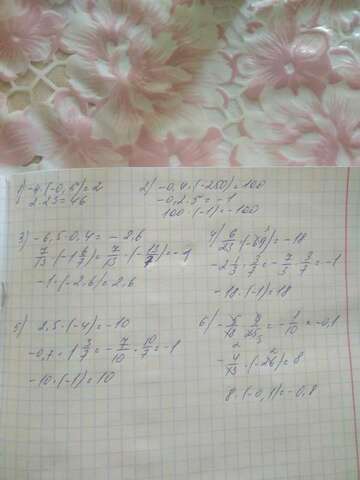 1) -4·(-0,5)=2
2·23=46
2) -0,4·(-250)=100
-0,2·5=-1
100·(-1)=-100
3) -6,5·0,4=-2,6
7/13·(-1 6/7)=7/13·(-13/7)=-1
-1·(-2,6)=2,6
4) 6/23·(-69)=-18
-2 1/3·3/7=-7/3·3/7=-1
-18·(-1)=18
5) 2,5·(-4)=-10
-0,7·1 3/7=-7/10·10/7=-1
-10·(-1)=10
6) -5/18·9/25=-1/10=-0,1
-4/13·(-26)=8
8·(-0,1)=-0,8